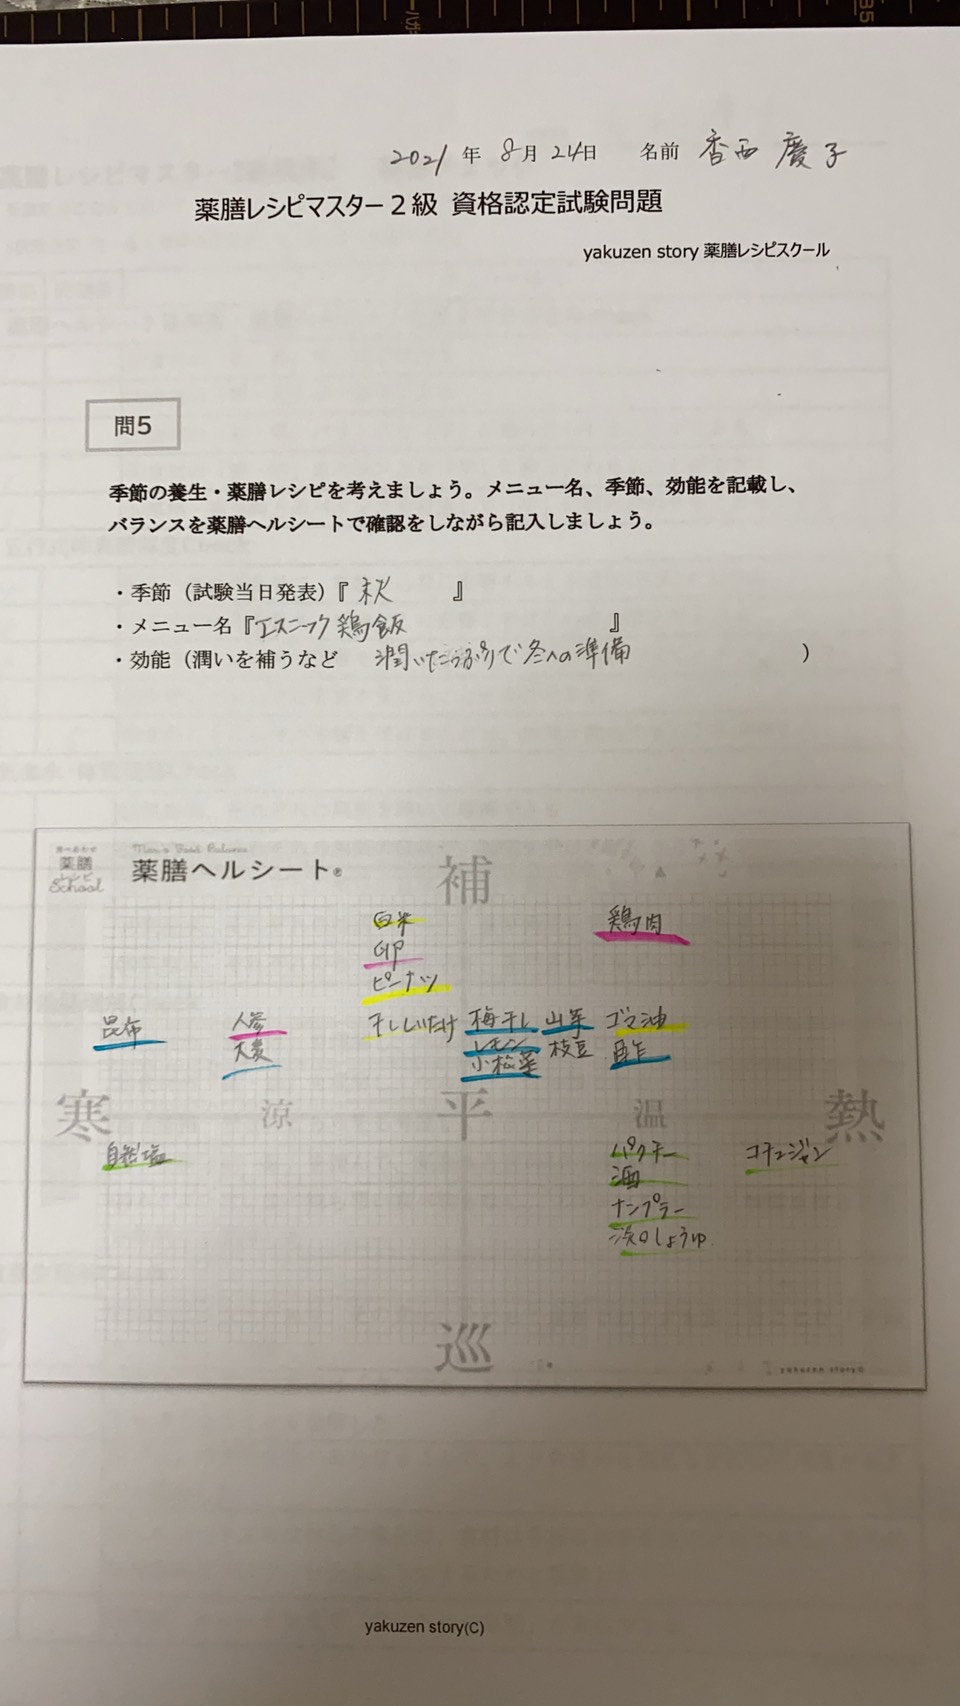 2021年 8月 24日 名前 香西 慶子
薬膳レシピマスター２級 資格認定試験問題
yakuzen story 薬膳レシピスクール
問5
季節の養生・薬膳レシピを考えましょう。メニュー名、季節、効能を記載し、
バランスを薬膳ヘルシートで確認をしながら記入しましょう。
・季節（試験当日発表）『 秋 』
・メニュー名『エスニック鶏飯 』
・効能（潤いを補うなど 潤いたっぷりで冬への準備 ）
薬膳
レシピ
School
薬膳ヘルシート®
補
白米 鶏肉
卵
ピーナツ
昆布 人参 干ししいたけ 梅干し 山芋 ゴマ油
大麦 レモン 枝豆 酢
小松菜
寒 涼 平 温 熱
自然塩 パクチー コチュジャン
酒
ナンプラー
淡口しょうゆ
巡
yakuzen story©
yakuzen story(C)